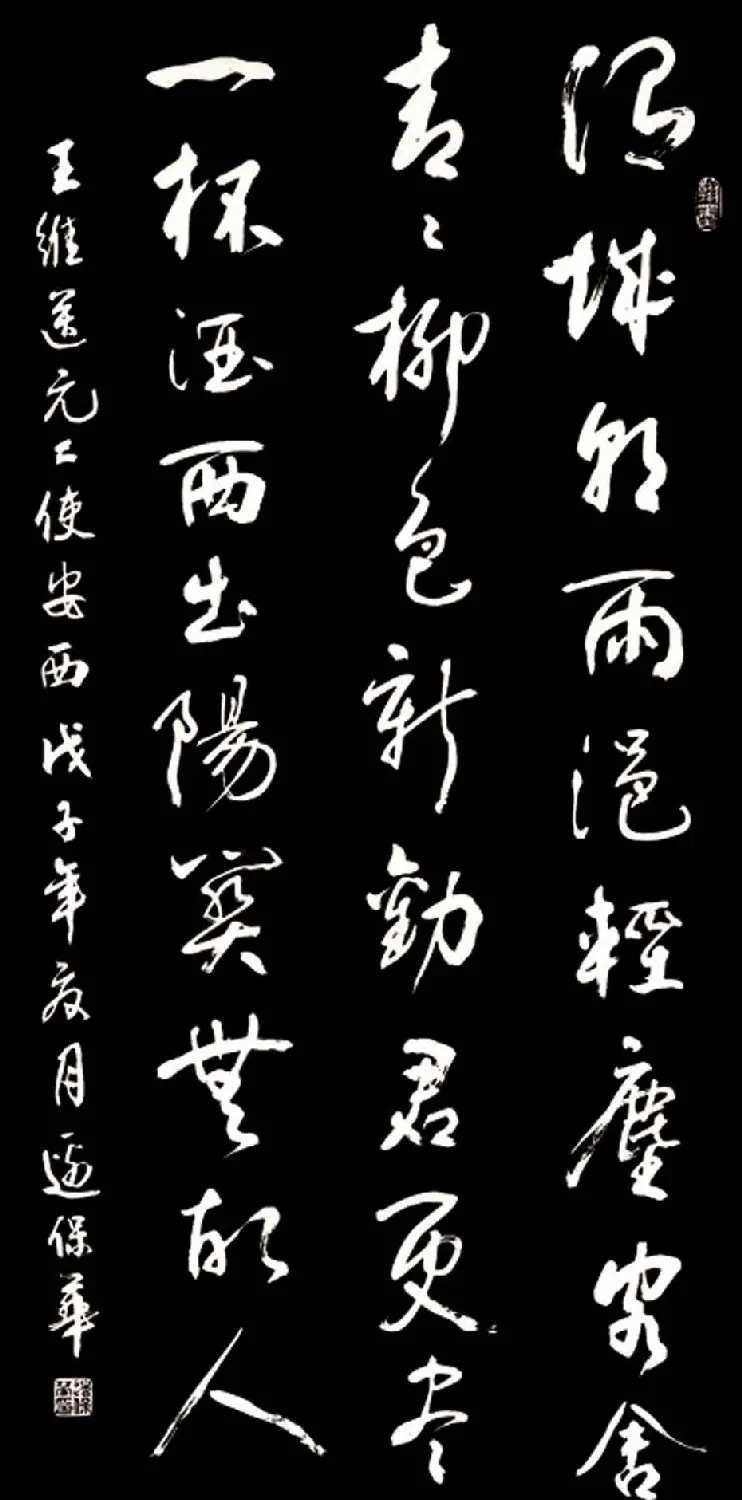 渭城朝雨浥輕塵客舍
青々柳色新勸君更尽
一杯酒西出陽關無故人
王維送元二使安西戊子年夏月保華